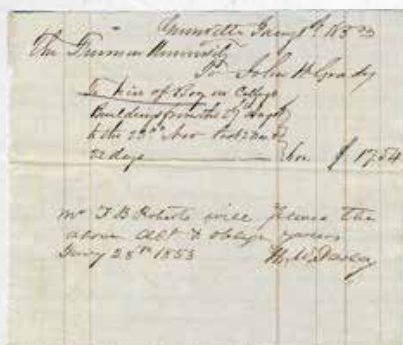 Greenville Jany 1st 1853
The Furman University
To John W Grady
To hire of Boy on College
Building from the 27th Augst
to the 23rd Nov
52 days 17.54
Mr T B Roberts will please the
above act & oblige yours
Jany 28th 1853